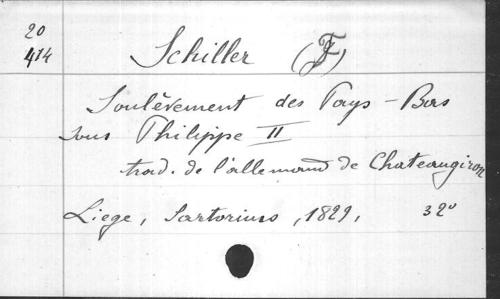 20
414
Schiller (F)
Soulèvement des Pays-Bas
sous Philippe II
trad. de l'allemand de Chateaugiron
Liege, Sartorius, 1829, 32°